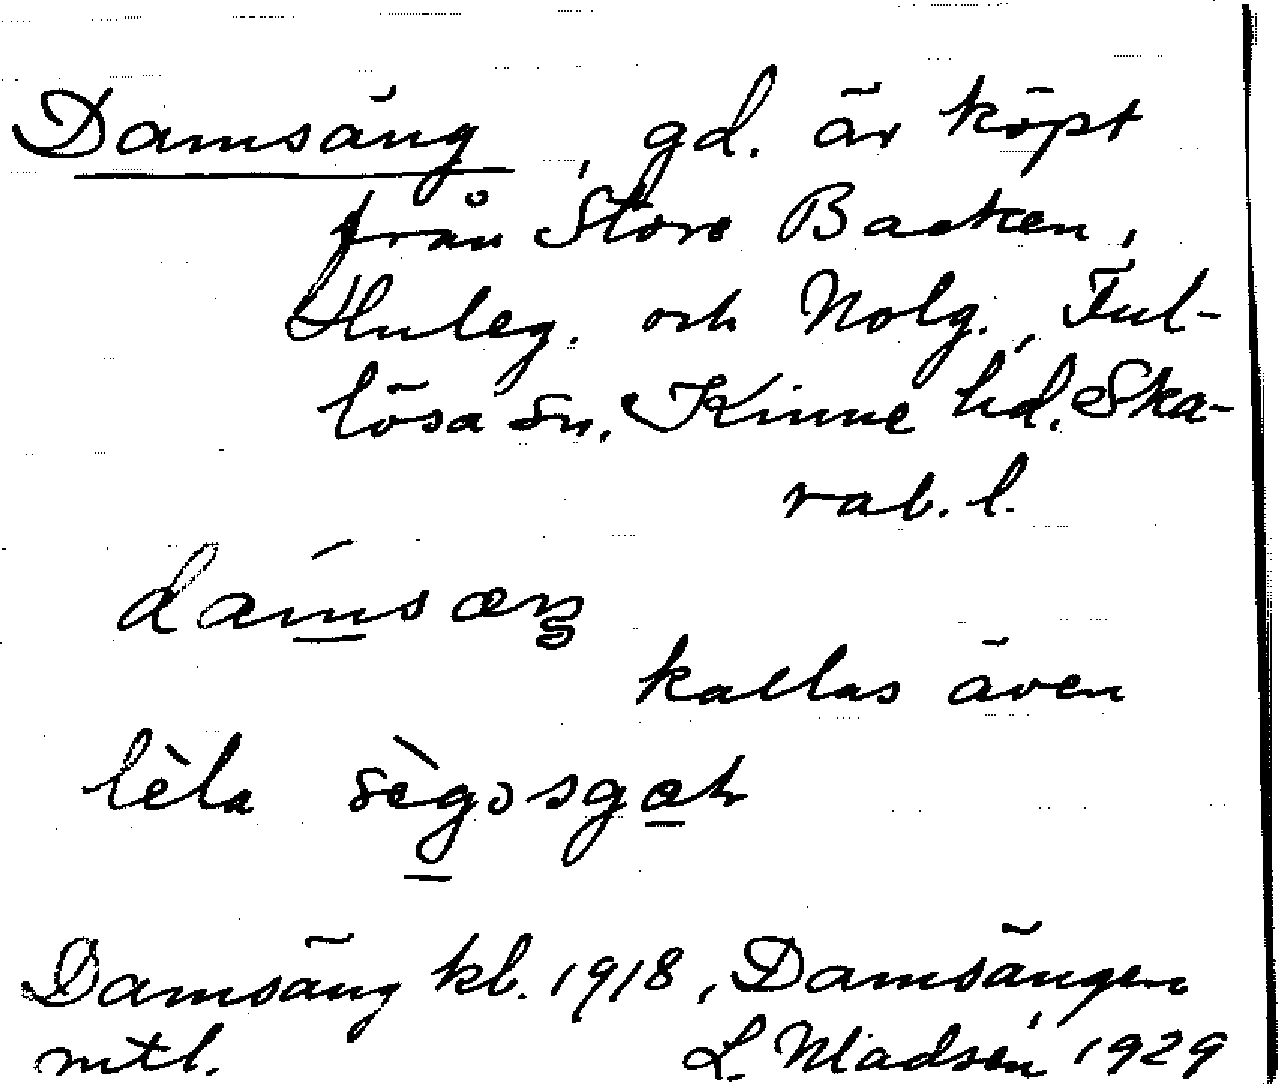 Damsäng, gd. är köpt
från Stora Backen,
Huleg. och Nolg., Ful-
lösa sn, Kinne hd. Ska-
rab. l.
dámsæŋ
kallas även
lèla sègɔsgat
Damsäng kb. 1918, Damsängen
mtl. L. Madsén 1929